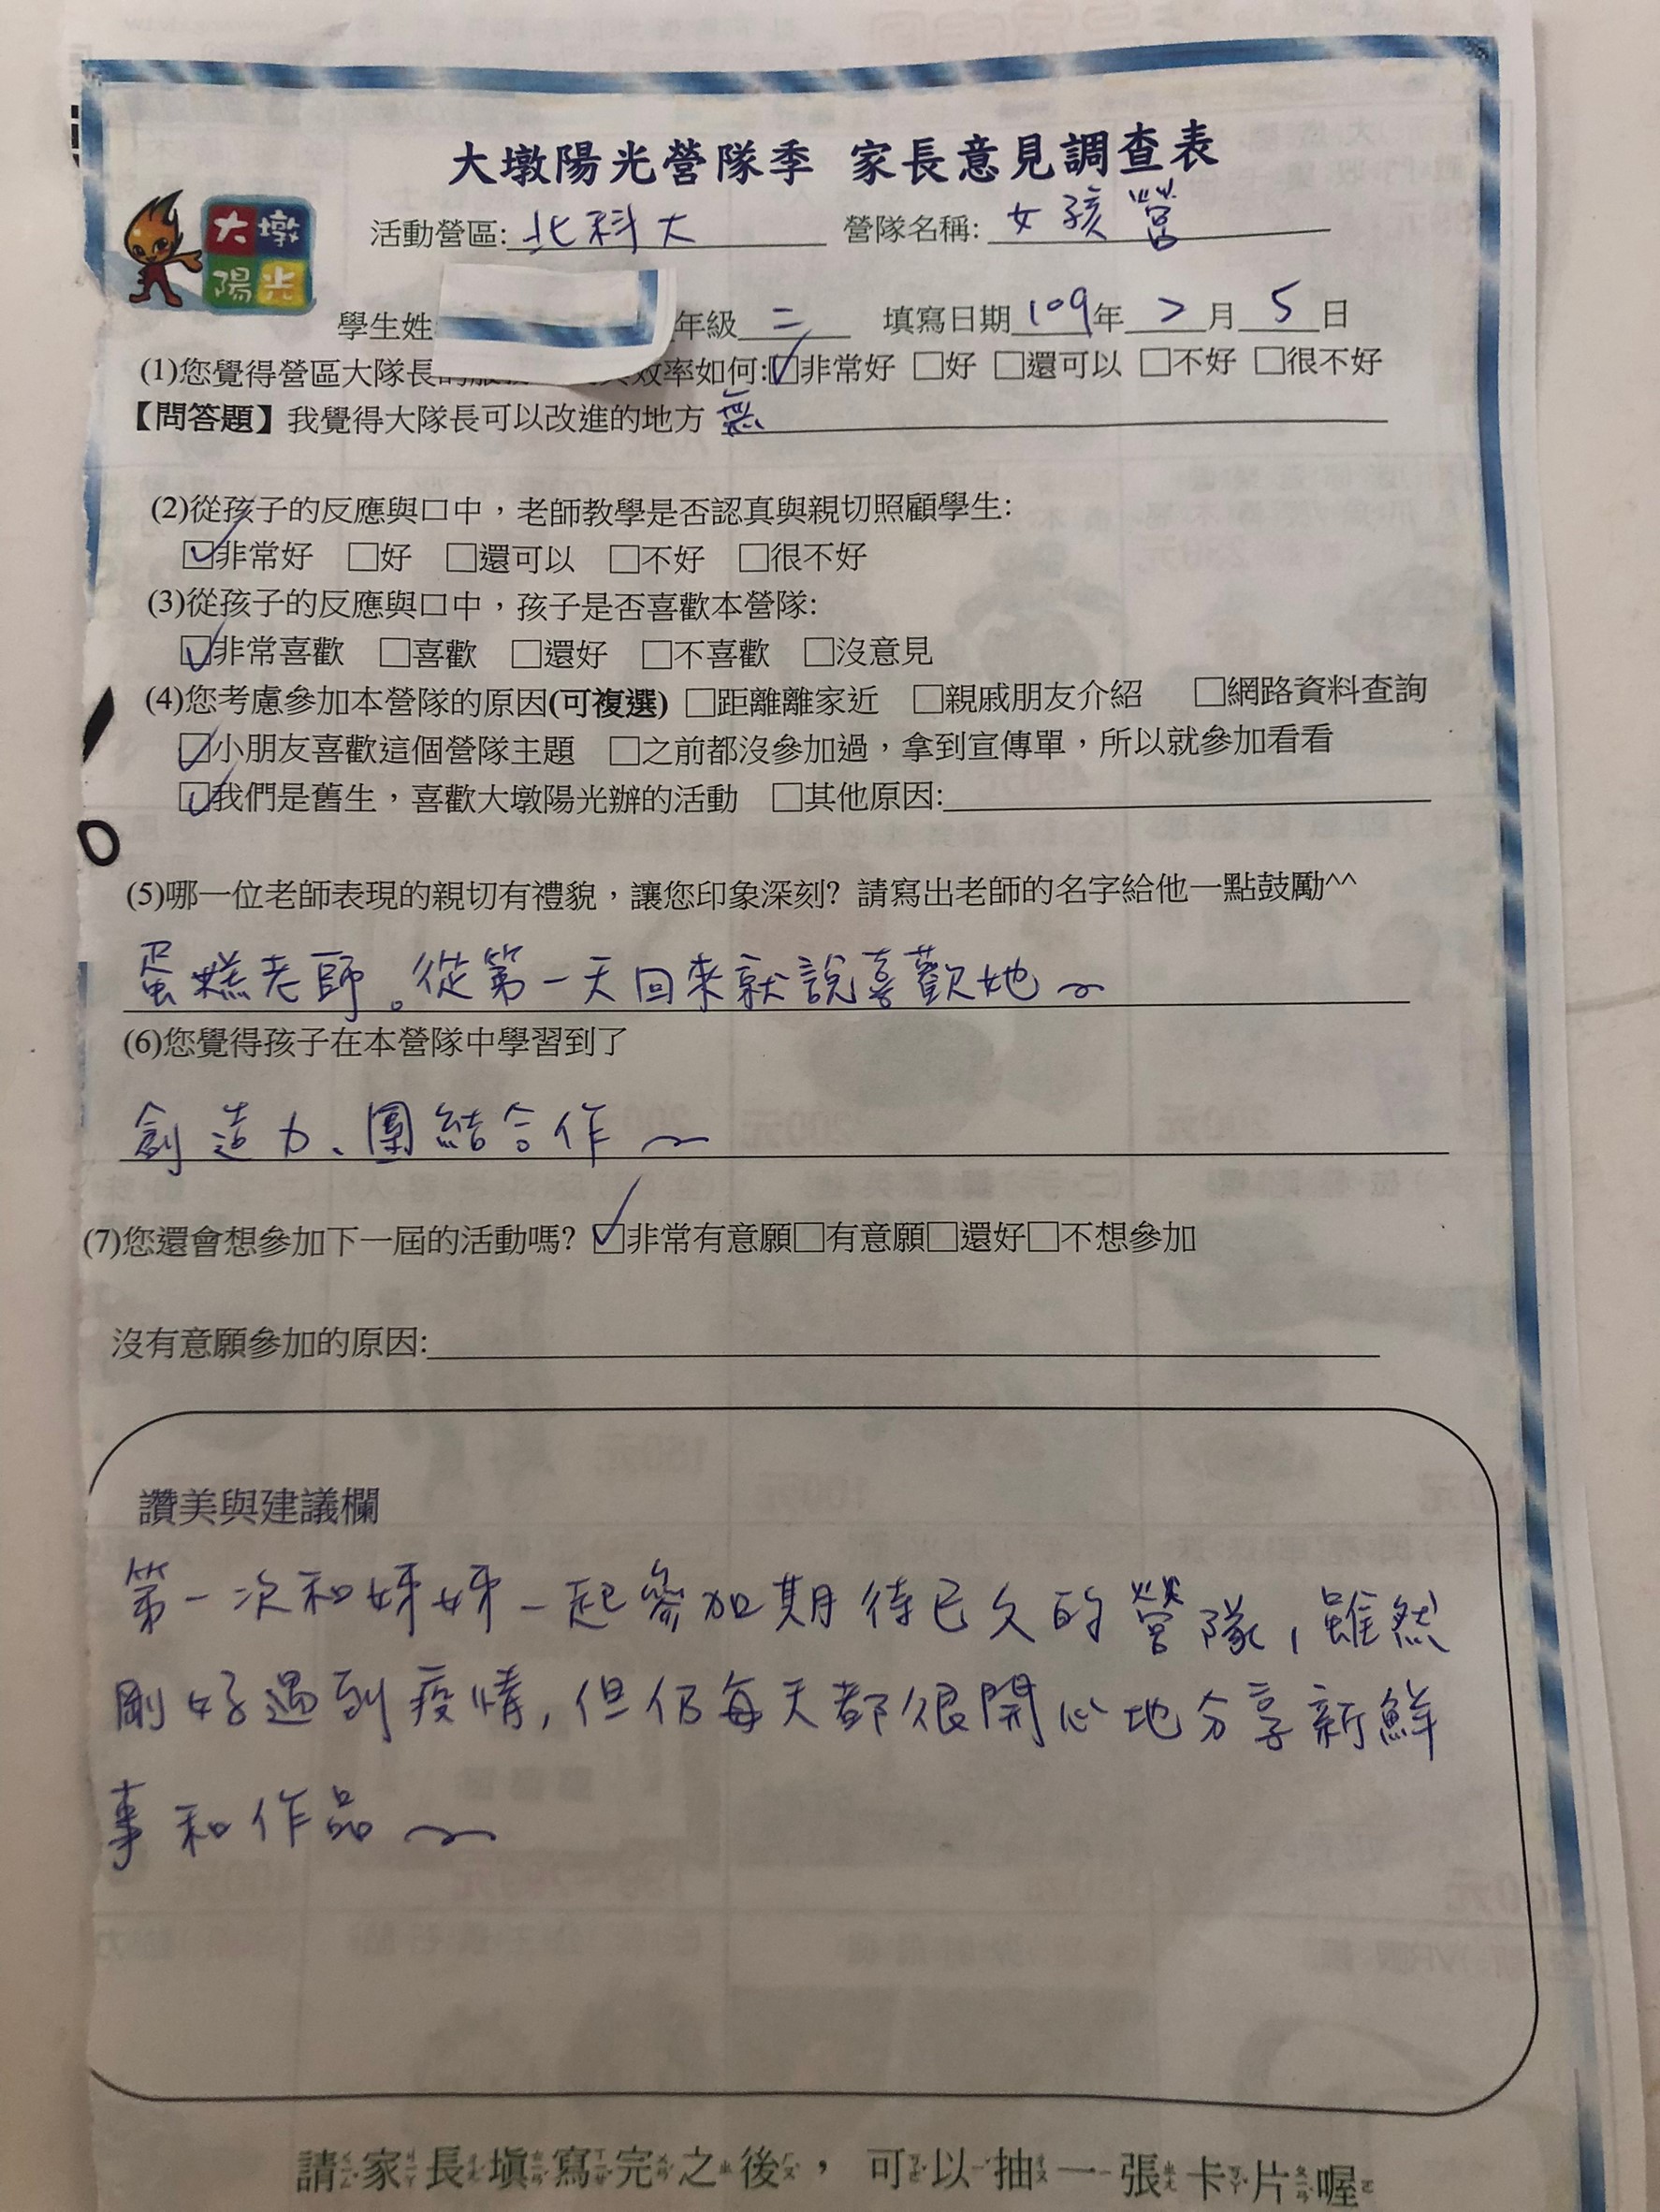 大墩陽光營隊季 家長意見調查表
大墩
陽光
活動營區:北科大 營隊名稱:女孩營
學生姓 年級二 填寫日期109年2月5日
(1)您覺得營區大隊長的服務 效率如何:☑非常好 □好 □還可以 □不好 □很不好
【問答題】我覺得大隊長可以改進的地方 無
(2)從孩子的反應與口中，老師教學是否認真與親切照顧學生:
☑非常好 □好 □還可以 □不好 □很不好
(3)從孩子的反應與口中，孩子是否喜歡本營隊:
☑非常喜歡 □喜歡 □還好 □不喜歡 □沒意見
(4)您考慮參加本營隊的原因(可複選) □距離離家近 □親戚朋友介紹 □網路資料查詢
☑小朋友喜歡這個營隊主題 □之前都沒參加過，拿到宣傳單，所以就參加看看
☑我們是舊生，喜歡大墩陽光辦的活動 □其他原因:
(5)哪一位老師表現的親切有禮貌，讓您印象深刻? 請寫出老師的名字給他一點鼓勵^^
蛋糕老師。從第一天回來就說喜歡她~
(6)您覺得孩子在本營隊中學習到了
創造力、團結合作~
(7)您還會想參加下一屆的活動嗎? ☑非常有意願□有意願□還好□不想參加
沒有意願參加的原因:
讚美與建議欄
第一次和姊姊一起參加期待已久的營隊,雖然
剛好遇到疫情,但仍每天都很開心地分享新鮮
事和作品~
請家長填寫完之後，可以抽一張卡片喔